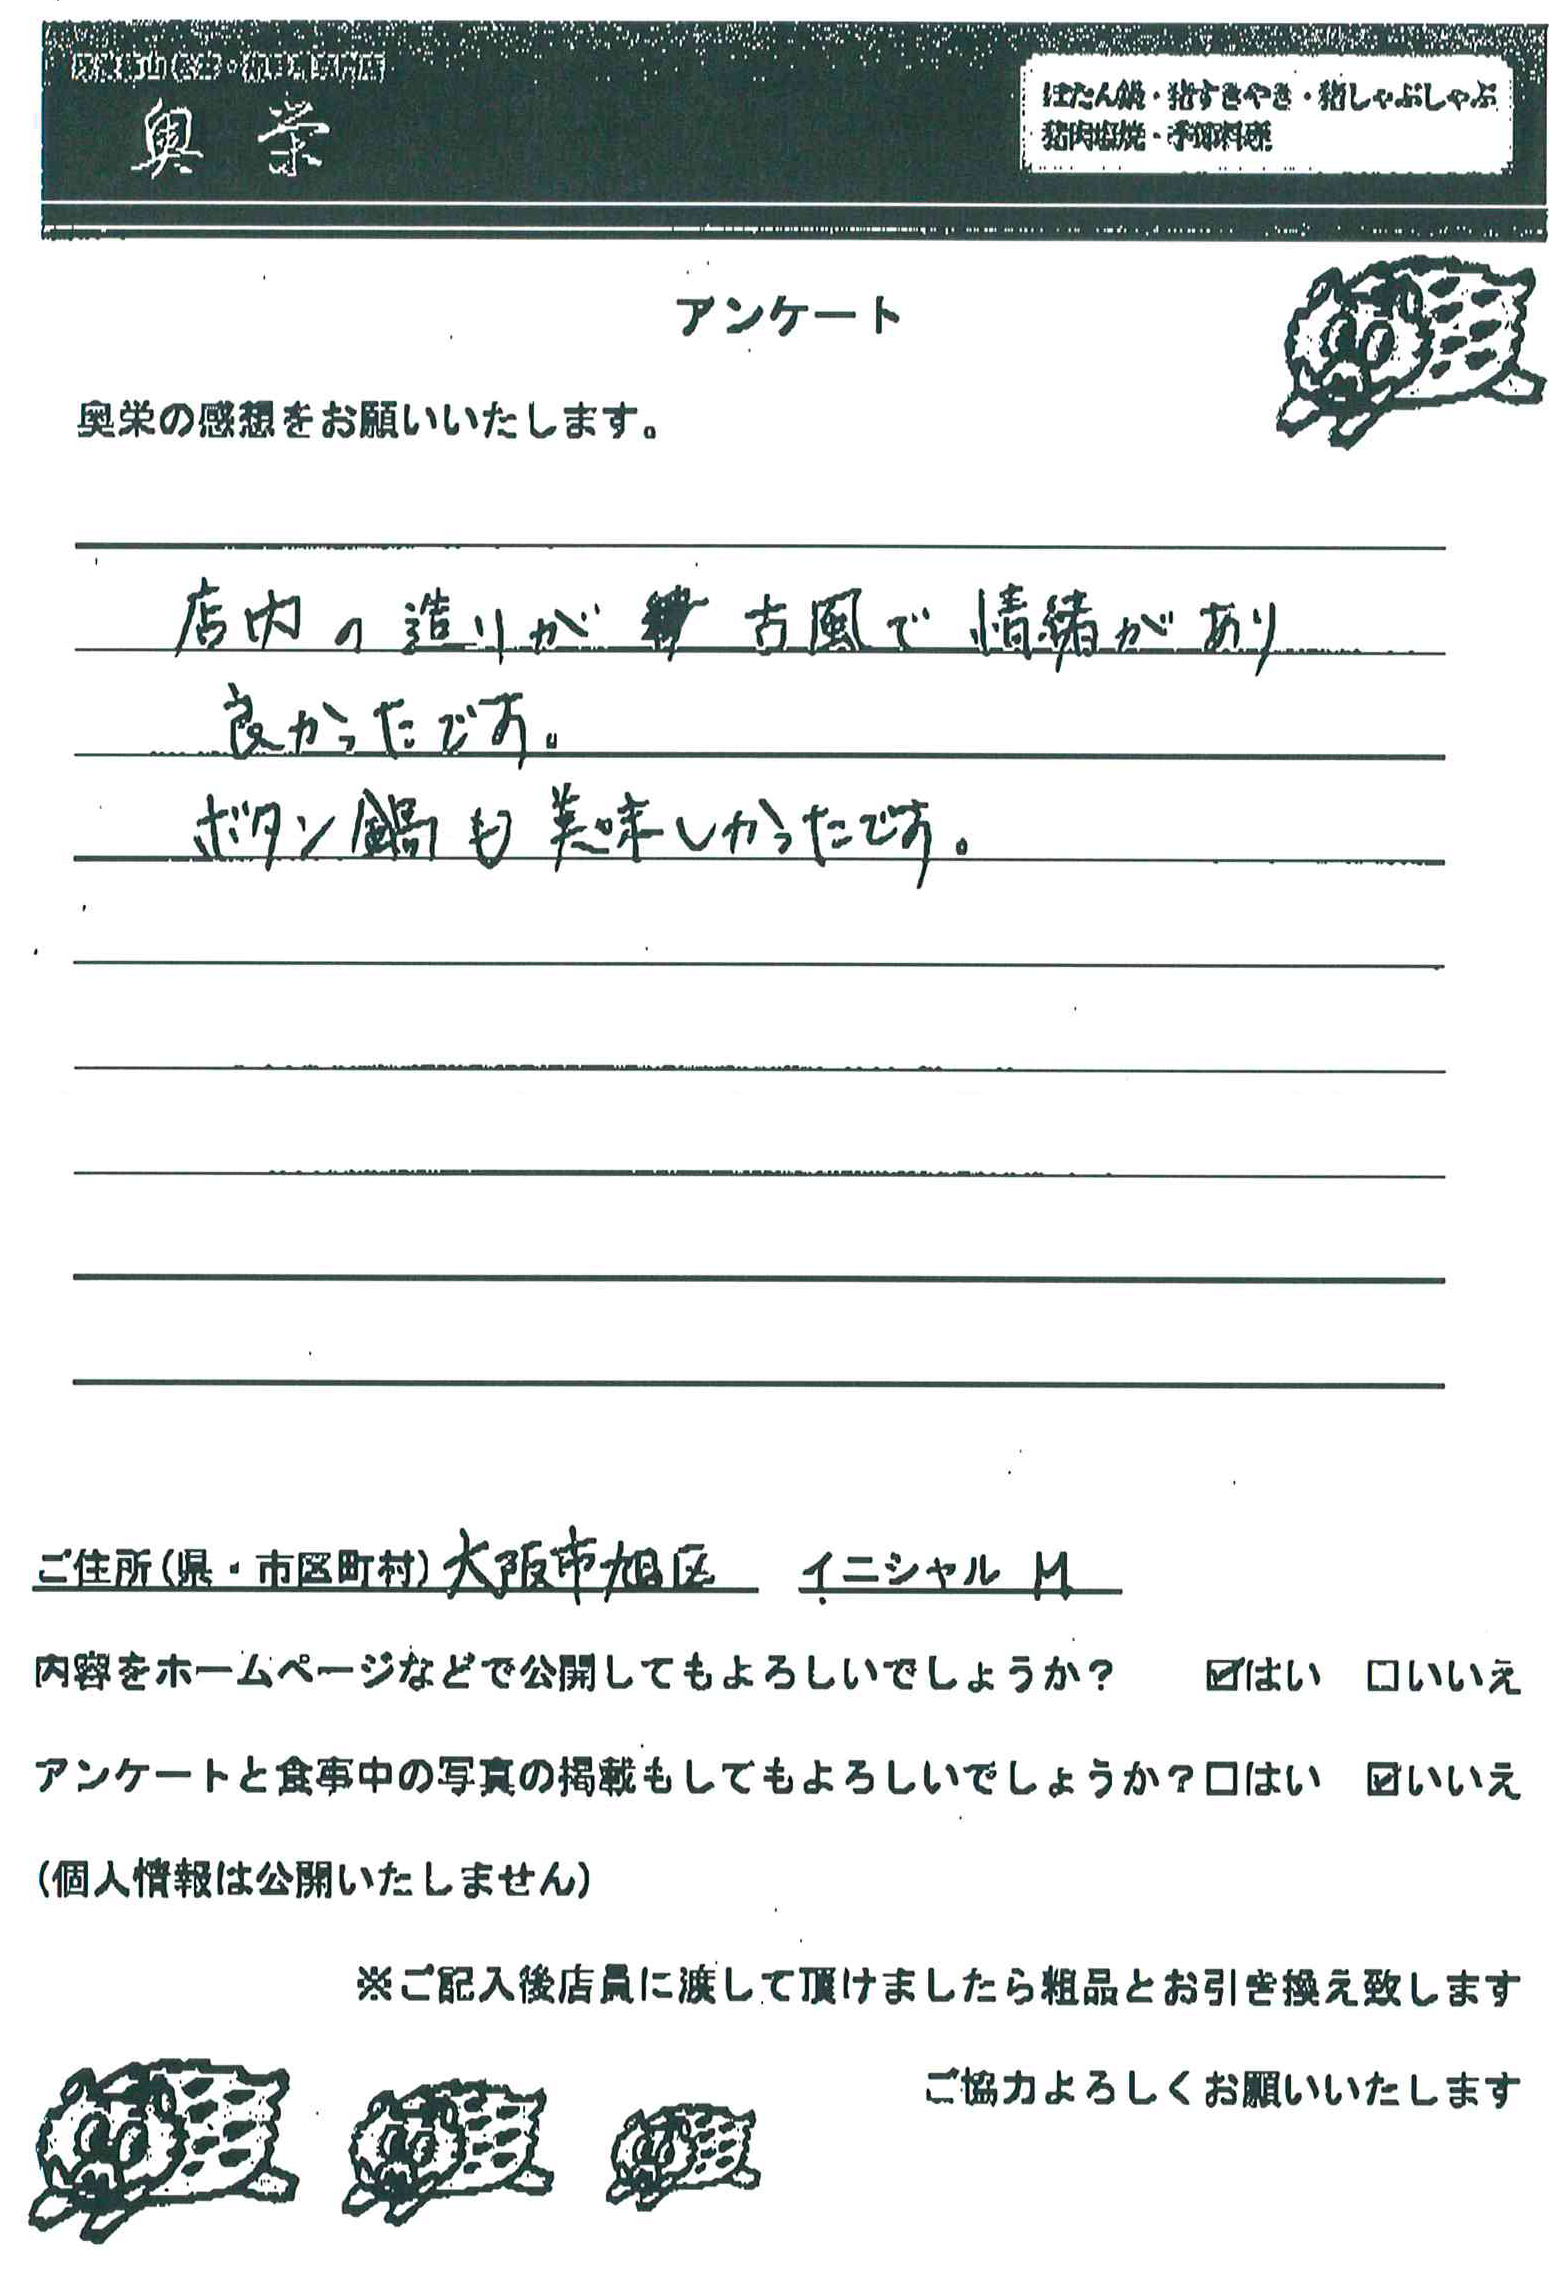 奥栄
ぼたん鍋・猪すきやき・猪しゃぶしゃぶ
猪肉塩焼・季節料理
アンケート
奥栄の感想をお願いいたします。
店内の造りが 古風で情緒があり
良かったです。
ボタン鍋も美味しかったです。
ご住所(県・市区町村) 大阪市旭区 イニシャル M
内容をホームページなどで公開してもよろしいでしょうか? ☑はい □いいえ
アンケートと食事中の写真の掲載もしてもよろしいでしょうか?□はい ☑いいえ
(個人情報は公開いたしません)
※ご記入後店員に渡して頂けましたら粗品とお引き換え致します
ご協力よろしくお願いいたします